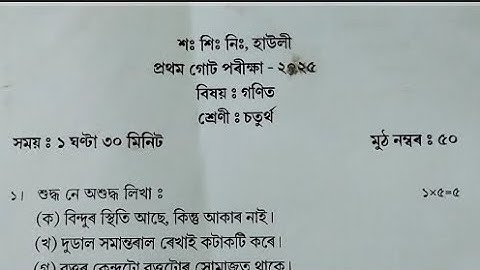 শঃ শিঃ নিঃ, হাউলী
প্ৰথম গোট পৰীক্ষা - ২০২৫
বিষয় ঃ গণিত
শ্ৰেণী ঃ চতুৰ্থ
সময় ঃ ১ ঘণ্টা ৩০ মিনিট মুঠ নম্বৰ ঃ ৫০
১। শুদ্ধ নে অশুদ্ধ লিখা ঃ ১×৫=৫
(ক) বিন্দুৰ স্থিতি আছে, কিন্তু আকাৰ নাই।
(খ) দুডাল সমান্তৰাল ৰেখাই কটাকটি কৰে।
(গ) বৃত্তৰ কেন্দ্ৰটো বৃত্তটোৰ সোমাজত থাকে।